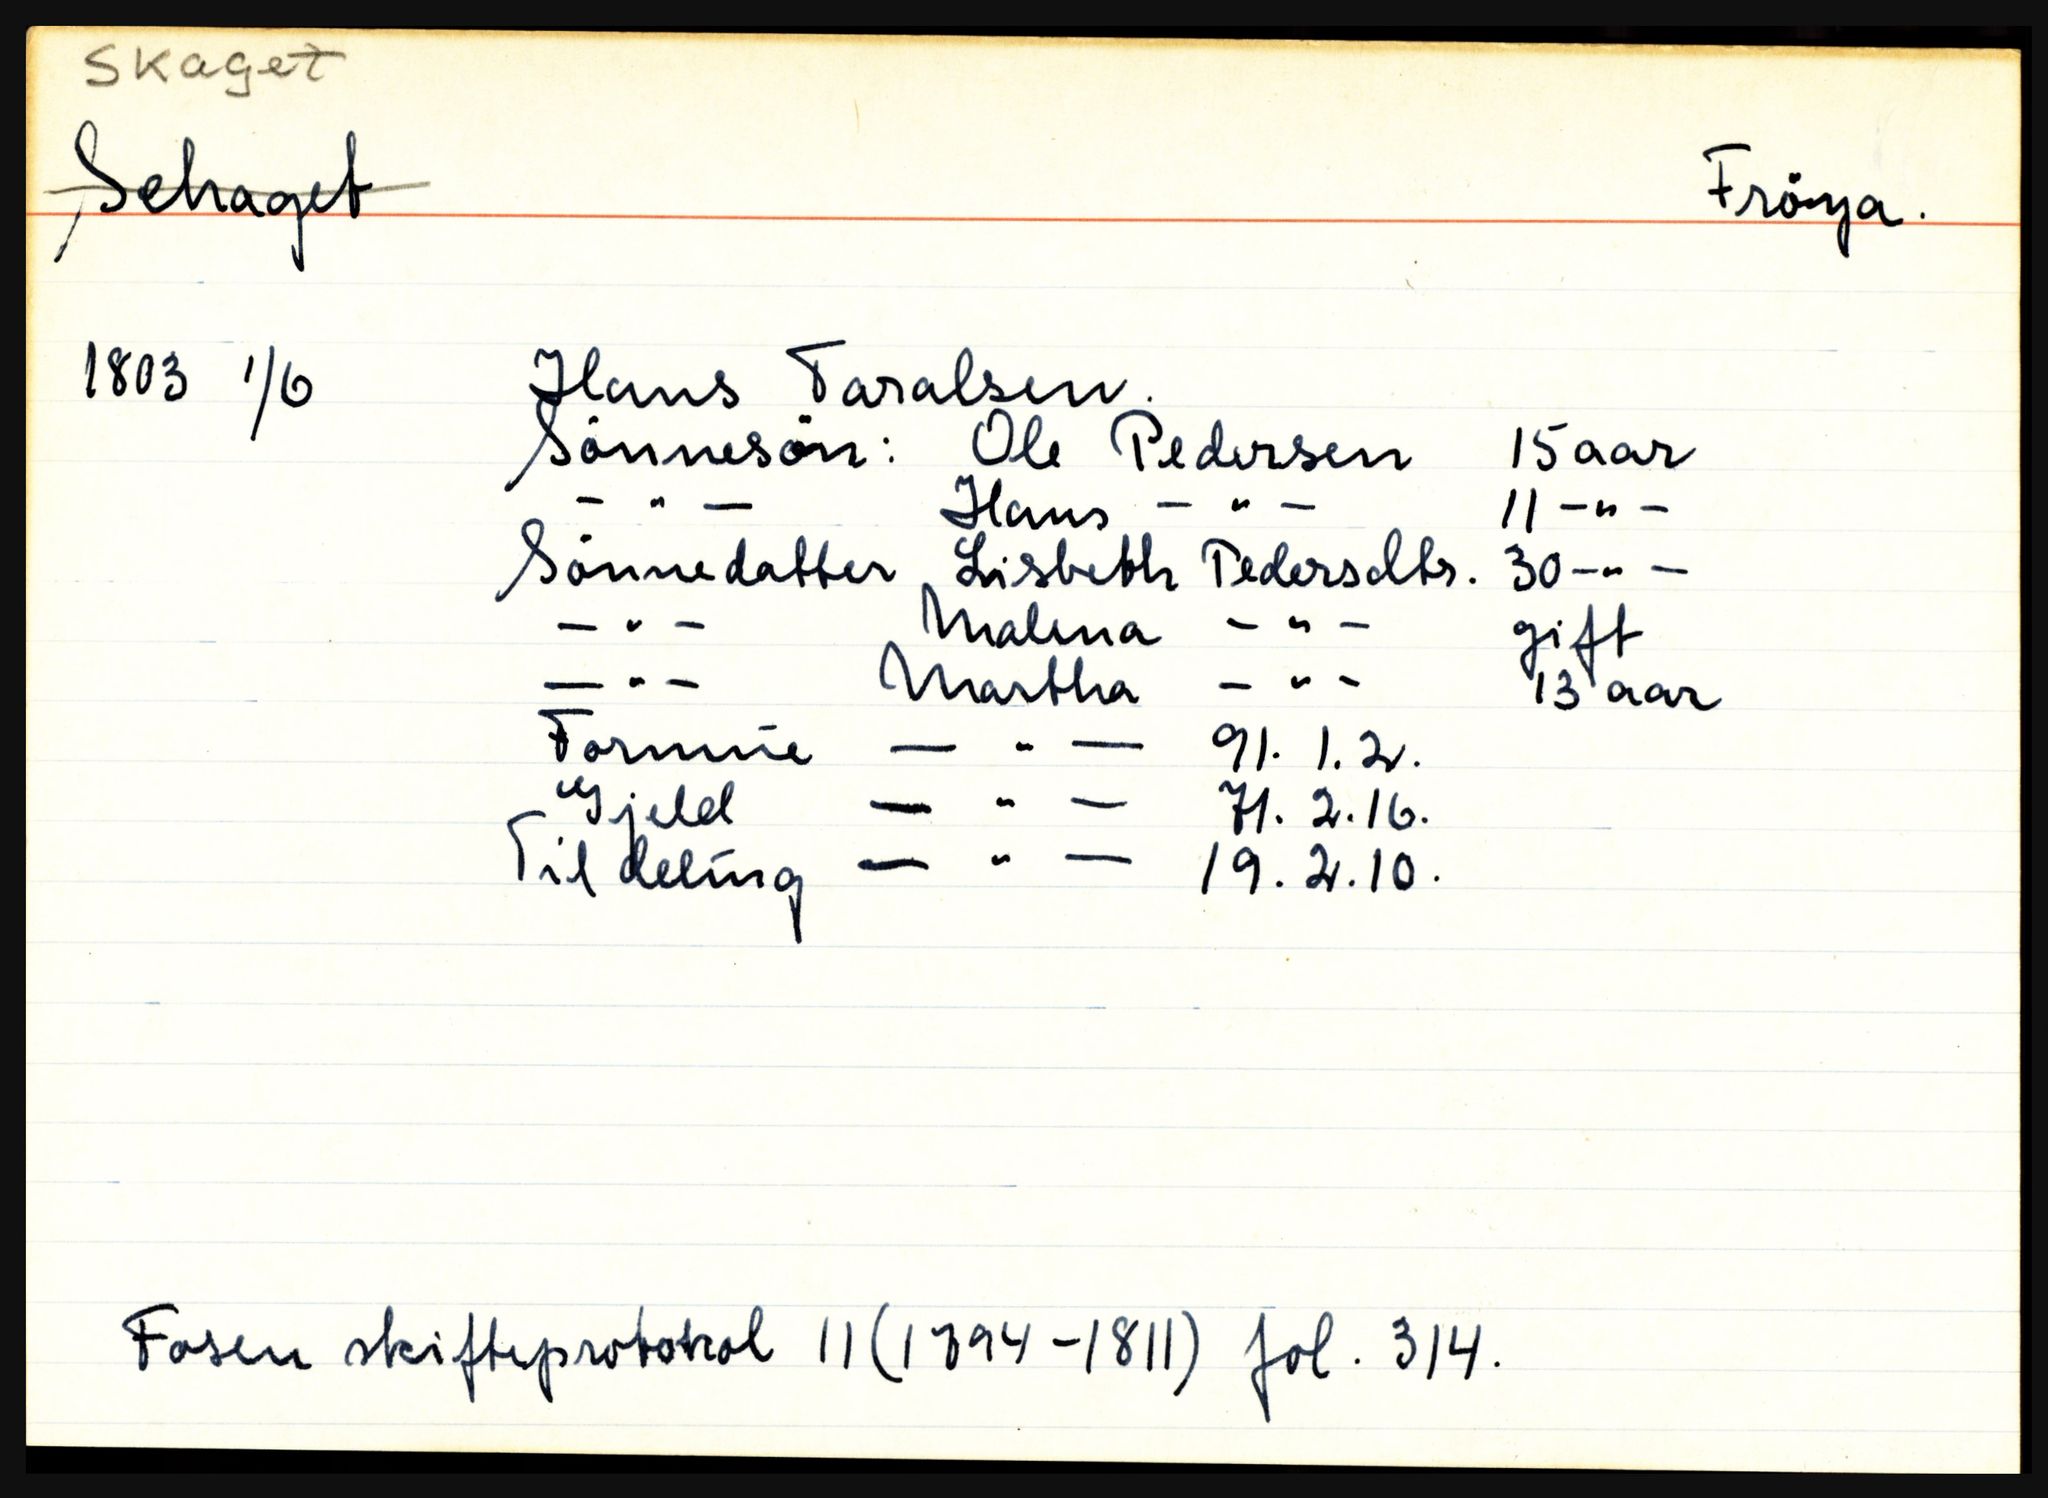 Skaget
Schaget Fröya.
1803 1/6 Hans Taralsen.
Sönnesön: Ole Pedersen 15 aar
- " - Hans - " - 11 - " -
Sönnedatter Lisbeth Pedersdtr. 30 - " -
- " - Malena - " - gift
- " - Martha - " - 13 aar
Formue - " - 91. 1. 2.
Gjeld - " - 71. 2. 16.
Til deling - " - 19. 2. 10.
Fosen skifteprotokol 11 (1794-1811) fol. 314.